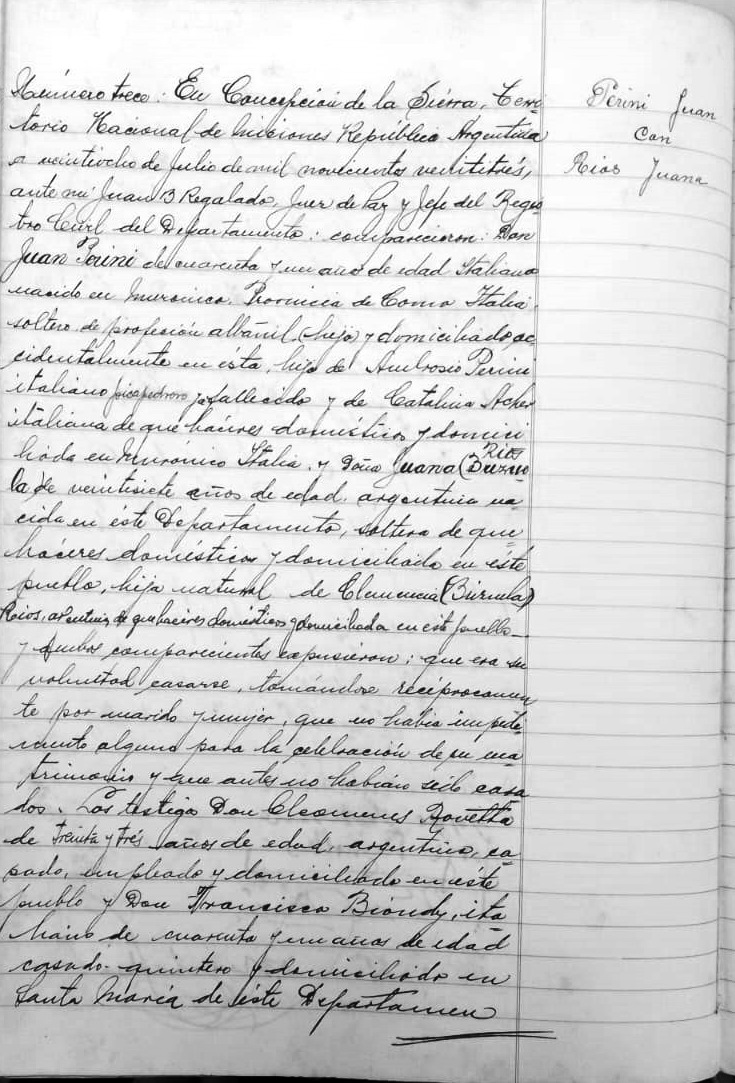 Número trece: En Concepción de la Sierra, Terri
torio Nacional de Misiones República Argentina
a veintiocho de Julio de mil novecientos veintitrés,
ante mi Juan B Regalado, Juez de Paz y Jefe del Regis
tro Civil del Departamento; comparecieron: Don
Juan Perini de cuarenta y un años de edad Italiano
nacido en Muronico. Provincia de Como Italia,
soltero, de profesión albañil, (hijo) y domiciliado ac
cidentalmente en ésta, hijo de Ambrosio Perini
italiano picapedrero ya fallecido y de Catalina
italiana de que háceres domésticos y domici
liada en Murónico Italia, y Doña Juana (
Rios
la de veintisiete años de edad, argentina na
cida en éste Departamento, soltera de que
háceres domésticos y domiciliada en éste
pueblo, hija natural de Clemencia
Rios, argentina de quehaceres domésticos y domiciliada en este pueblo
y ambos comparecientes expusieron; que era su
voluntad casarse, tomándose recíprocamen
te por marido y mujer, que no había impedi
mento alguno para la celebración de su ma
trimonio y que antes no habían sido casa
dos. Los testigos Don Cleomenes Rovetta
de treinta y tres años de edad, argentino, ca
sado, empleado y domiciliado en este
pueblo y Don Francisco Biondy, ita
liano de cuarenta y un años de edad
casado quintero y domiciliado en
Santa María de éste Departamen
Perini Juan
con
Rios Juana